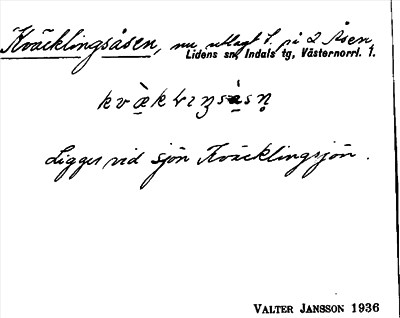 Kväcklingsåsen, nu utlagt t. på 2 Åsen
Lidens sn, Indals tg, Västernorrl. l.
Ligger vid sjön Kväcklingsjön.
VALTER JANSSON 1936